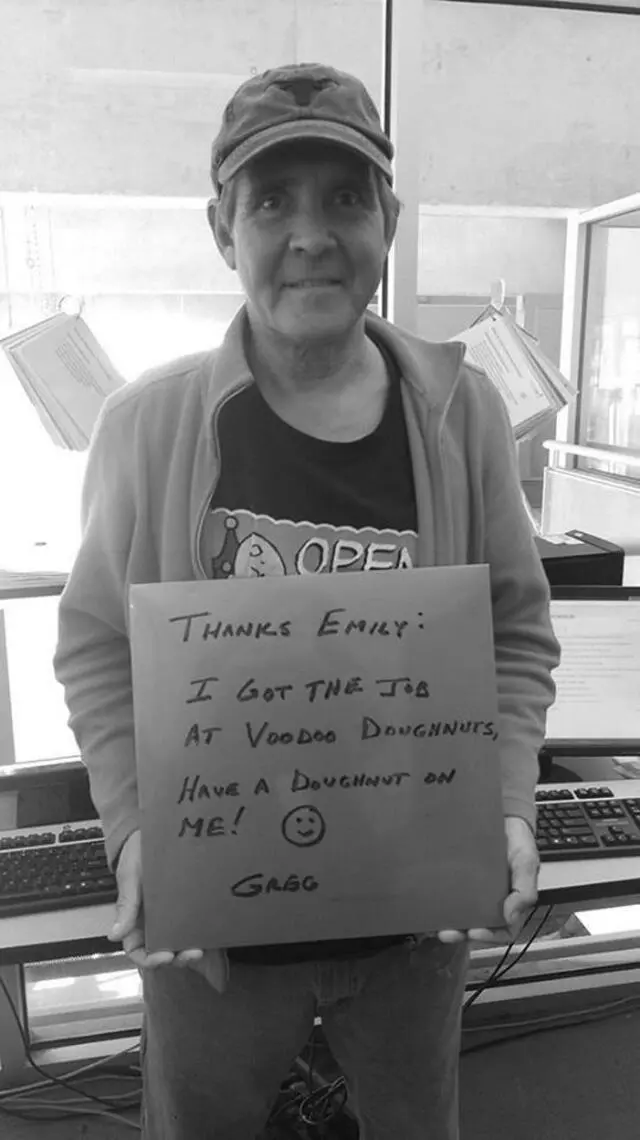 OPEN
THANKS EMILY:
I GOT THE JOB
AT VOODOO DOUGHNUTS,
HAVE A DOUGHNUT ON
ME!
GREG